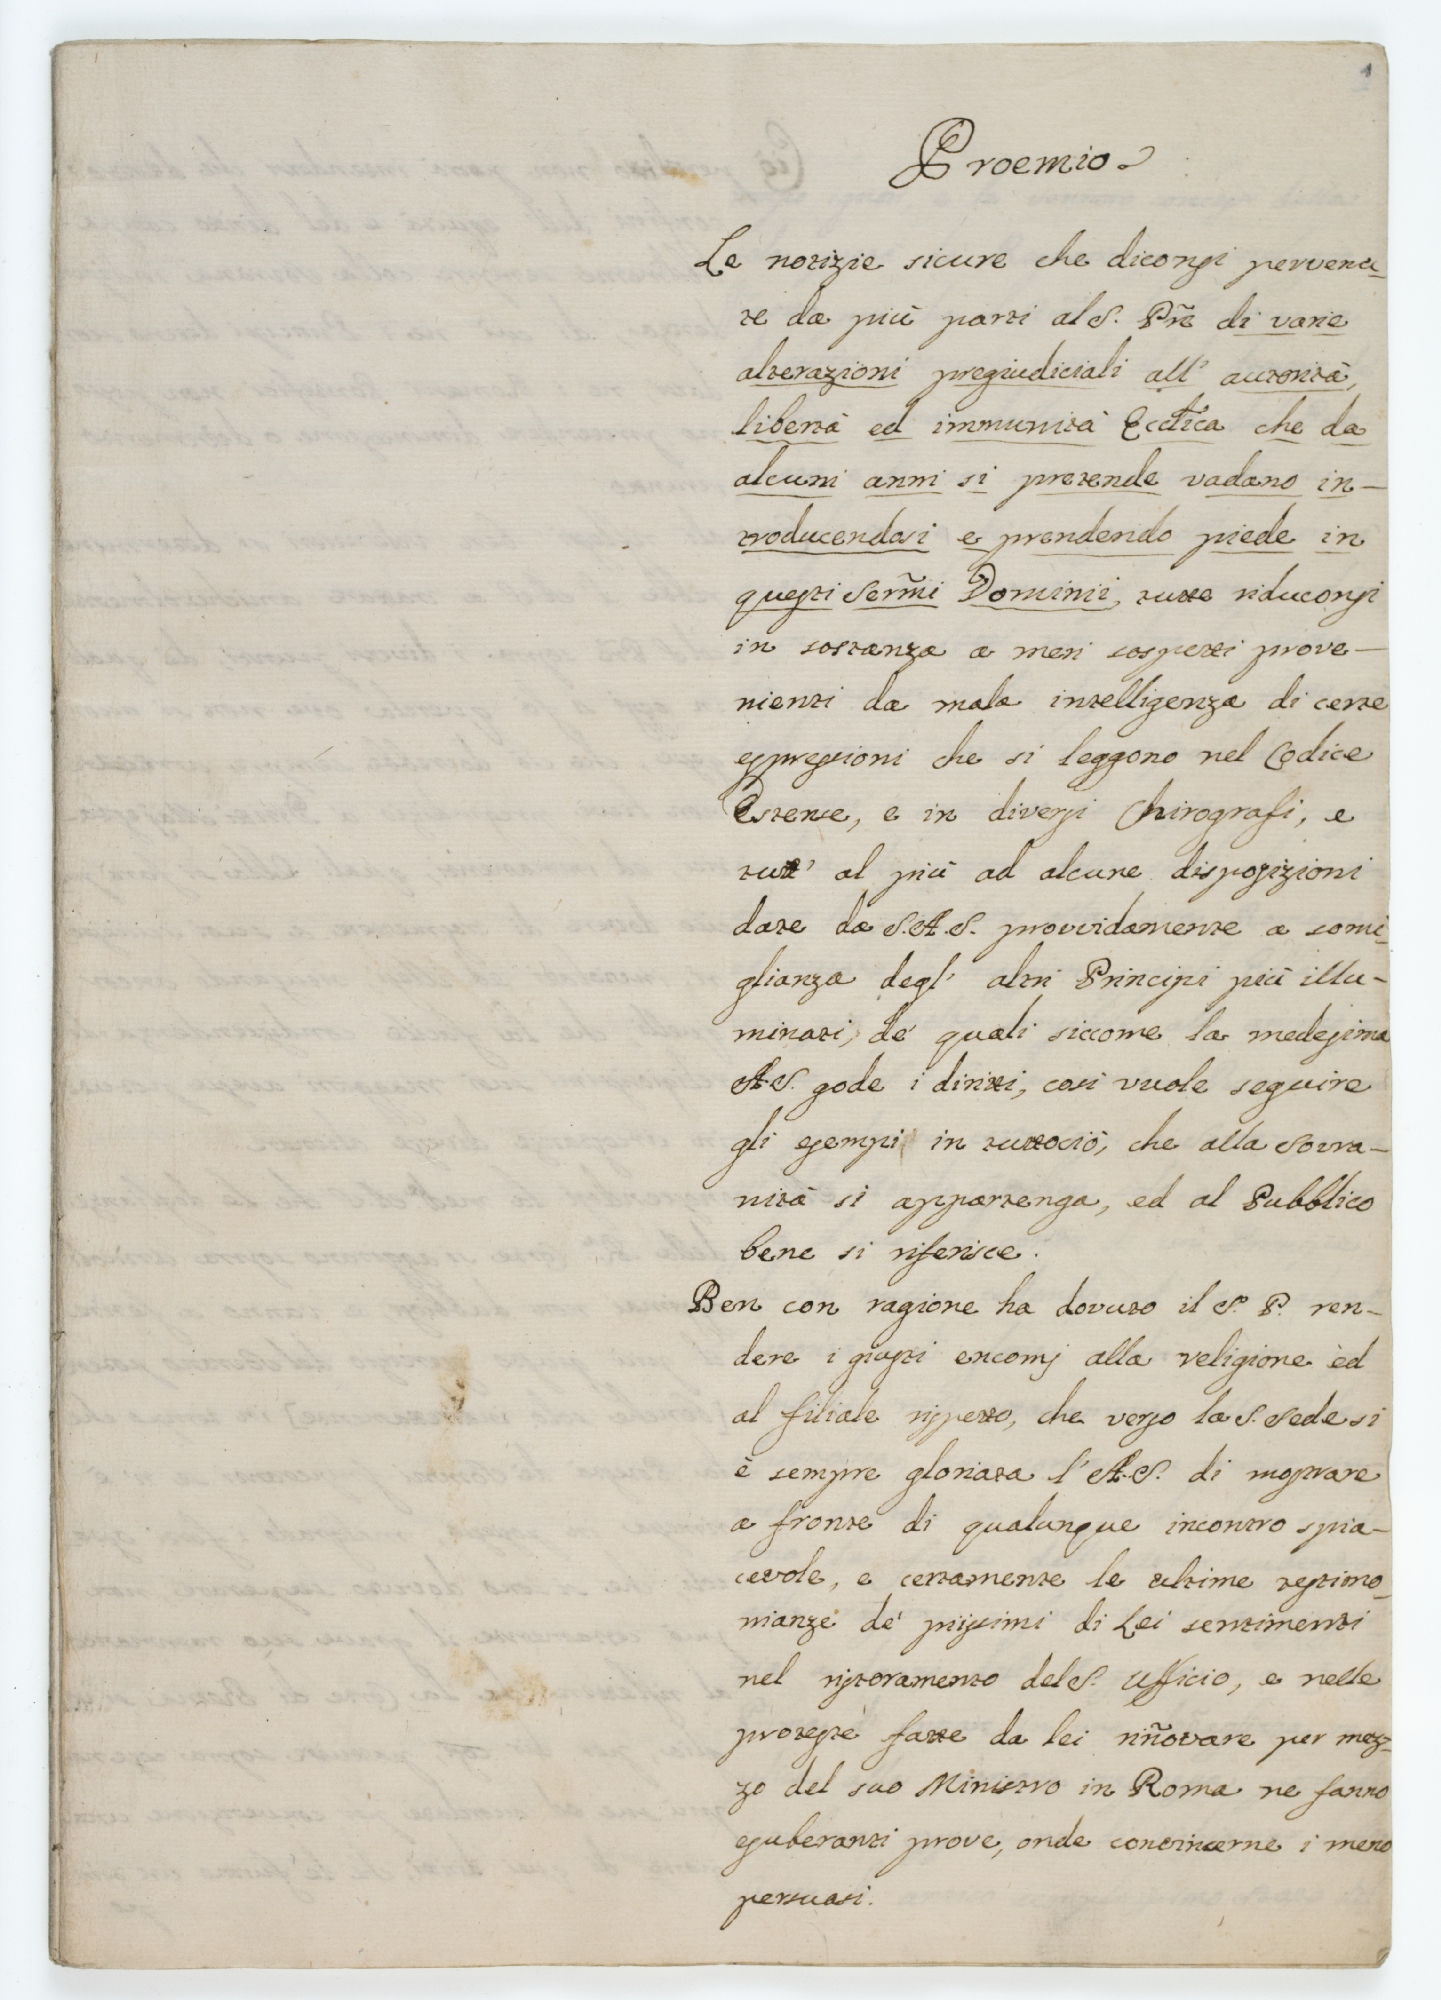 1
Proemio
Le notizie sicure che diconsi pervenu-
te da più parti al S. Prẽ di varie
alterazioni pregiudiciali all' autorità,
libertà ed immunità Ecctica che da
alcuni anni si pretende vadano in-
troducendosi e prendendo piede in
questi Sermĩ Dominii, tutte riduconsi
in sostanza a meri sospetti prove-
nienti da mala intelligenza di certe
espressioni che si leggono nel Codice
Estense, e in diversi Chirografi, e
tutt' al più ad alcune disposizioni
date da S.A.S. provvidamente a somi-
glianza degl' altri Principi più illu-
minati, de' quali siccome la medesima
A.S. gode i diritti, così vuole seguire
gli esempi in tuttociò, che alla Sovra-
nità si appartenga, ed al Pubblico
bene si riferisce.
Ben con ragione ha dovuto il S. P. ren-
dere i giusti encomj alla religione èd
al filiale rispetto, che verso la S. Sede si
è sempre gloriata l' A.S. di mostrare
a fronte di qualunque incontro spia-
cevole, e certamente le ultime testimo-
nianze de' piissimi di Lei sentimenti
nel ristoramento del S. Ufficio, e nelle
proteste fatte da lei riñovare per mez-
zo del suo Ministro in Roma ne fanno
esuberanti prove, onde convincerne i meno
persuasi.